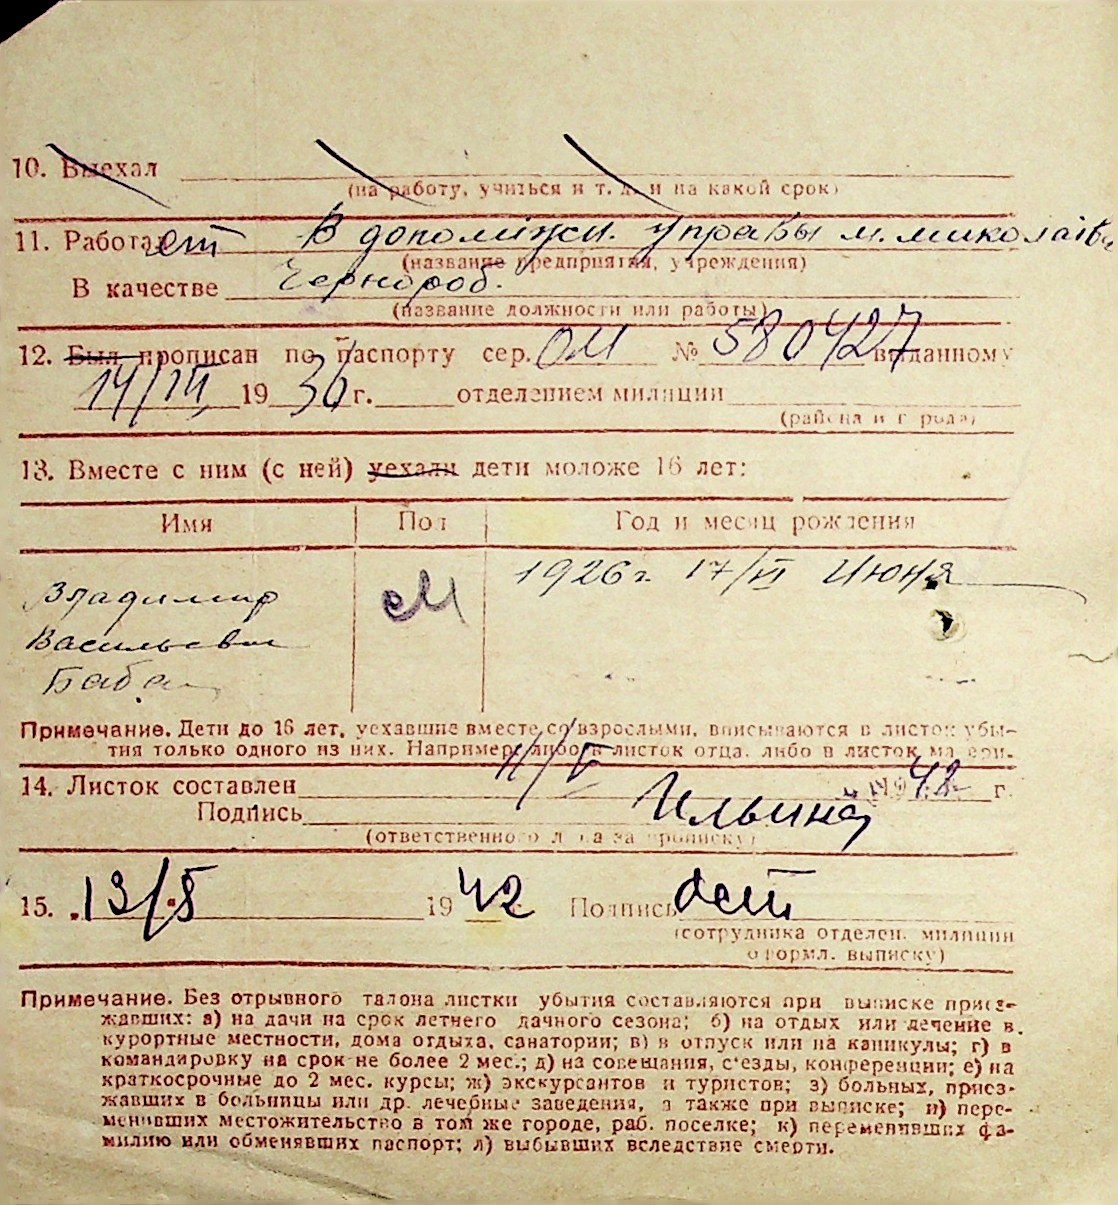 10. Выехал
(на работу, учиться и т. д. и на какой срок)
11. Работает в допоміжн. управы м. миколаів
(название предприятия, учреждения)
В качестве Чернороб.
(название должности или работы)
12. Был прописан по паспорту сер. ОМ № 580427 выданному
14/III 1936 г. отделением милиции
(района и города)
13. Вместе с ним (с ней) уехали дети моложе 16 лет:
Имя Пол Год и месяц рождения
Владимир М 1926 г. 17/VI Июня
Васильевич
Бабац
Примечание. Дети до 16 лет, уехавшие вместе со взрослыми, вписываются в листок убы-
тия только одного из них. Например, либо в листок отца, либо в листок матери.
14. Листок составлен 11/V 1942 г.
Подпись Ильина
(ответственного лица за прописку)
15. 13/5 1942 Подпись
(сотрудника отделен. милиции
оформл. выписку)
Примечание. Без отрывного талона листки убытия составляются при выписке приез-
жавших: а) на дачи на срок летнего дачного сезона; б) на отдых или лечение в
курортные местности, дома отдыха, санатории; в) в отпуск или на каникулы; г) в
командировку на срок не более 2 мес.; д) на совещания, с'езды, конференции; е) на
краткосрочные до 2 мес. курсы; ж) экскурсантов и туристов; з) больных, приез-
жавших в больницы или др. лечебные заведения, а также при выписке; и) пере-
менивших местожительство в том же городе, раб. поселке; к) переменивших фа-
милию или обменявших паспорт; л) выбывших вследствие смерти.